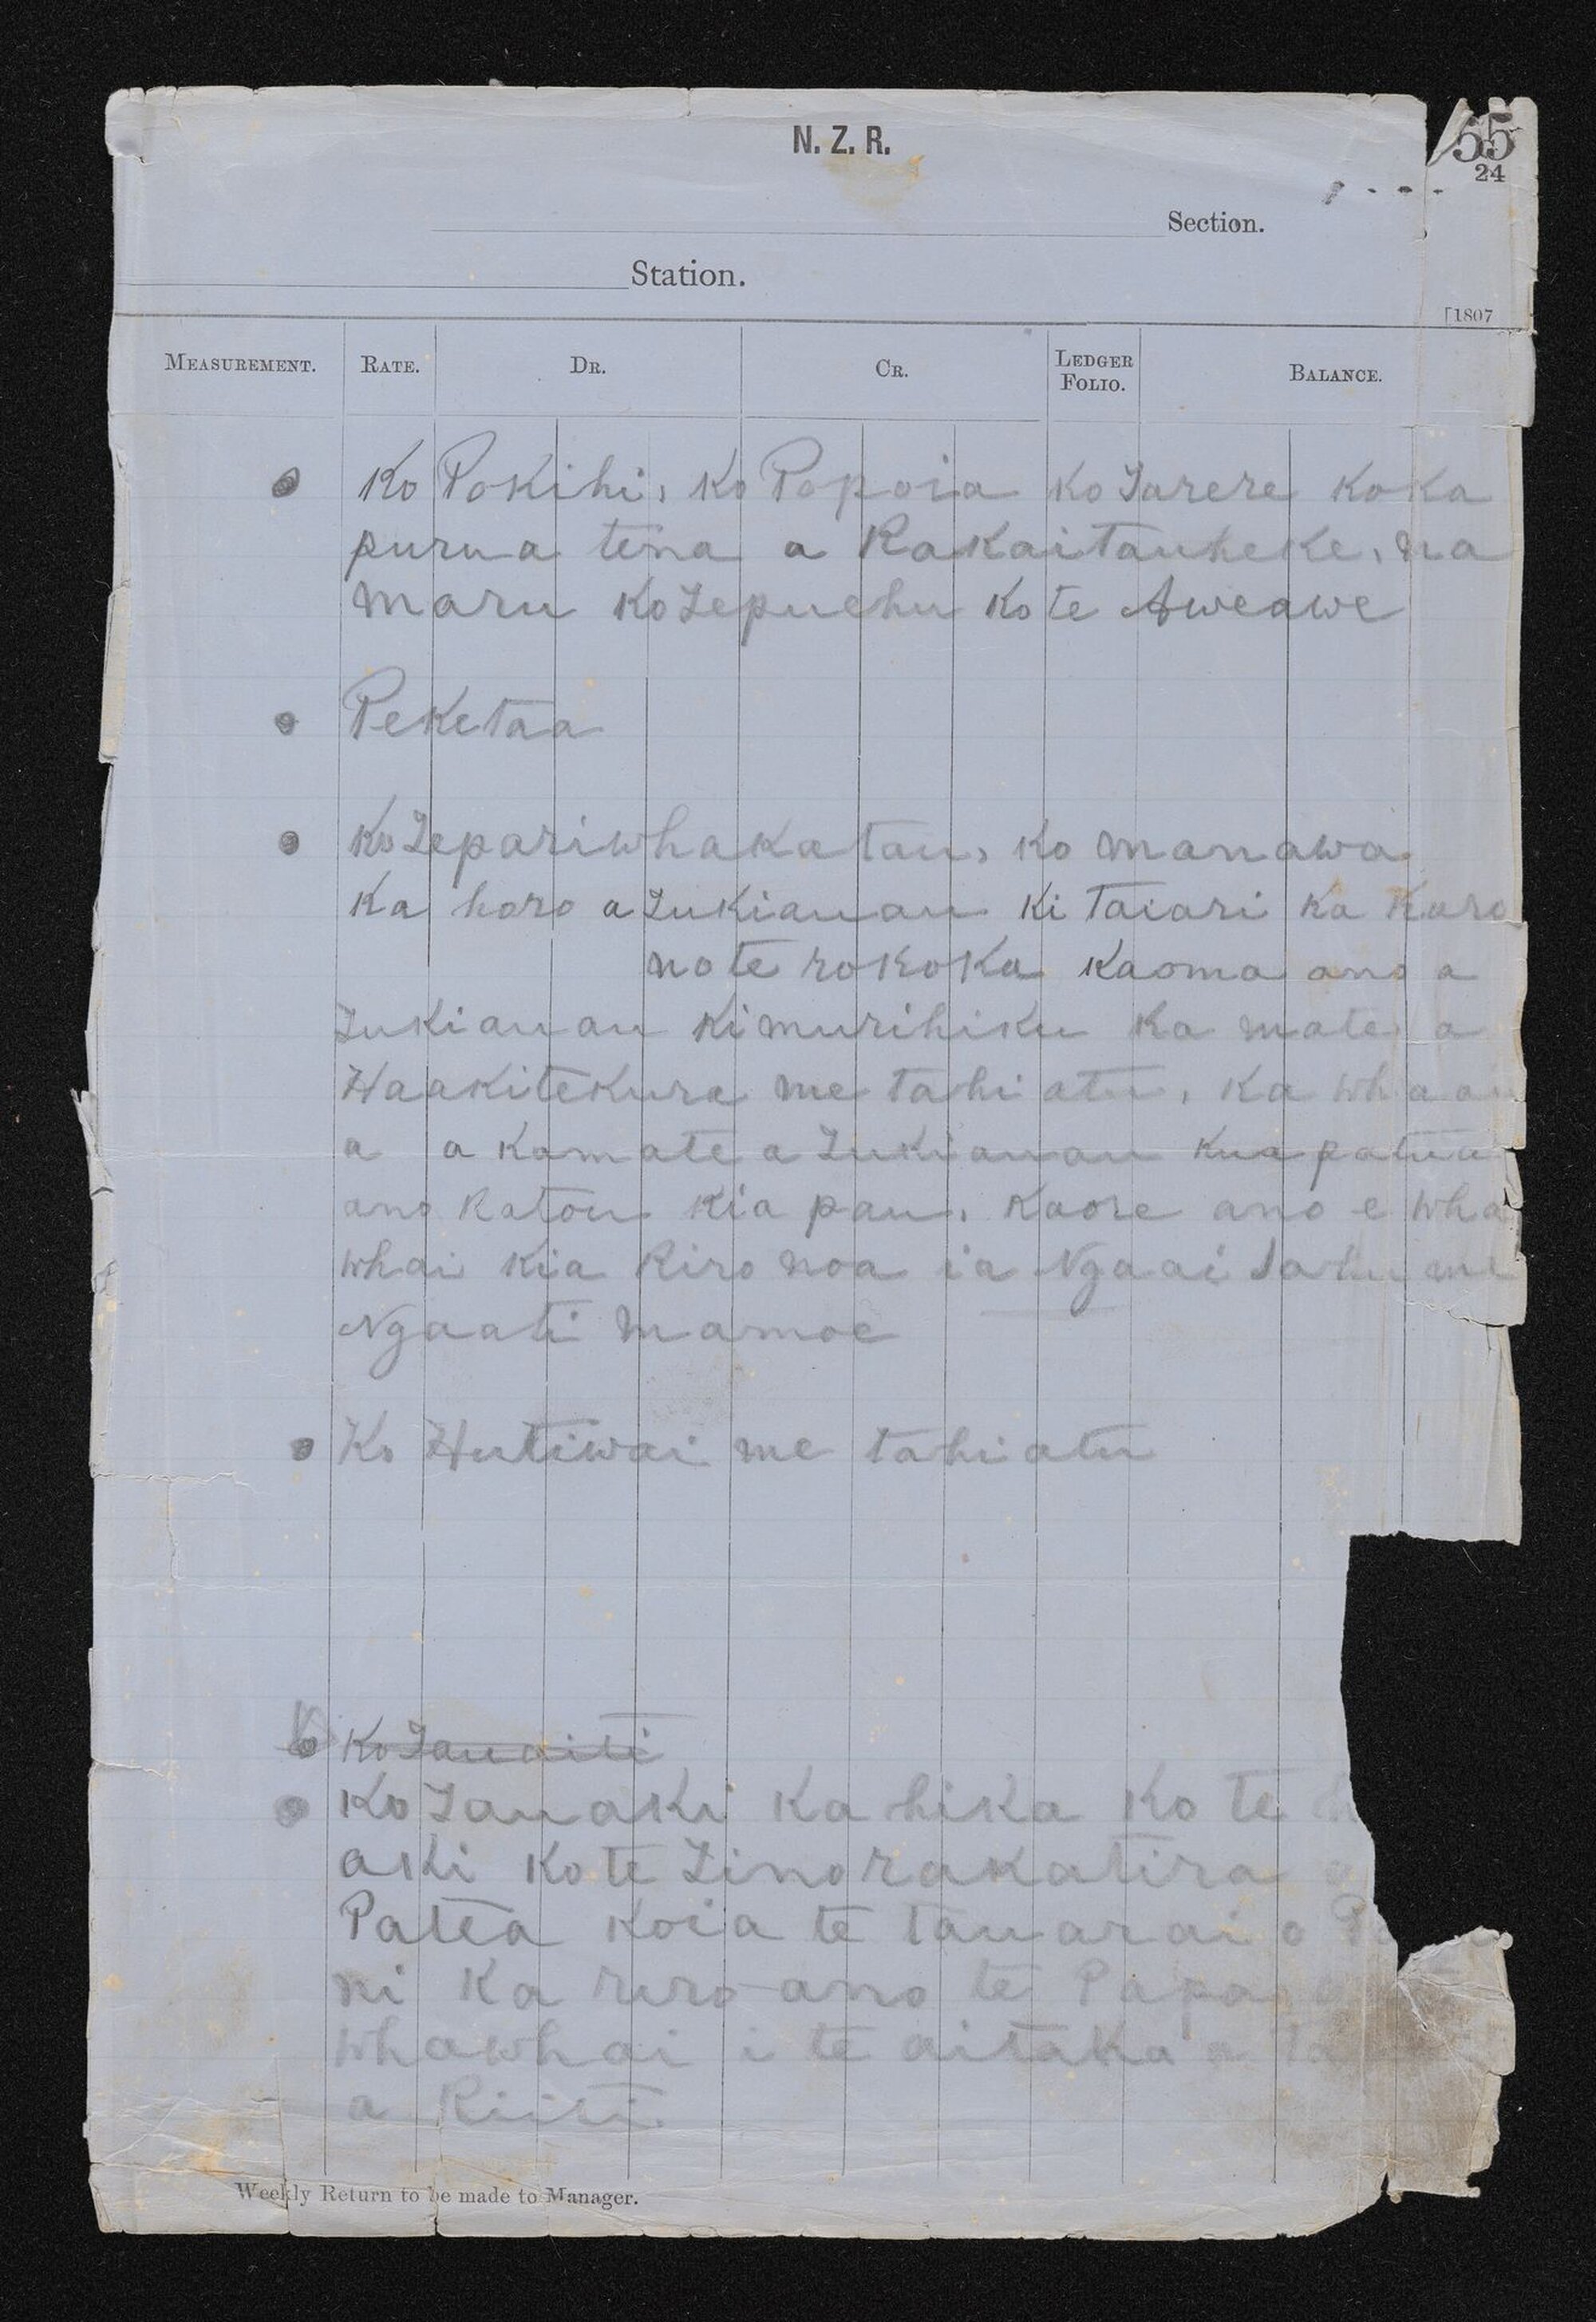 N. Z. R.
55
24
Section.
Station.
[1807
MEASUREMENT. RATE. DR. CR. LEDGER FOLIO. BALANCE.
Ko Pokihi, ko Popoia ko Tarere koka
purua tena a Rakaitauheke, na
maru ko Tepuehu ko te Aweawe
Peketaa
Ko Tepariwhakatau, ko manawa
Ka horo a Tukiauau ki Taiari ka Karo
no te rokoka kaoma ano a
Tukiauau kimurihiku ka mate a
Haakitekura me tahi atu, ka whaau
a a kamate a Tukiauau kua patua
ano Ratou kia pau, kaore ano e wha
whai kia Riro noa ia Ngaai me
Ngaati mamoe
Ko Hutiwai me tahi atu
Ko Tauaiti
Ko Tauaki ka hika ko te
aki ko te Tinorakatira
Patea koia te tauarai o
ni ka riro ano te Papa
whawhai i te aitaka a
a
Weekly Return to be made to Manager.